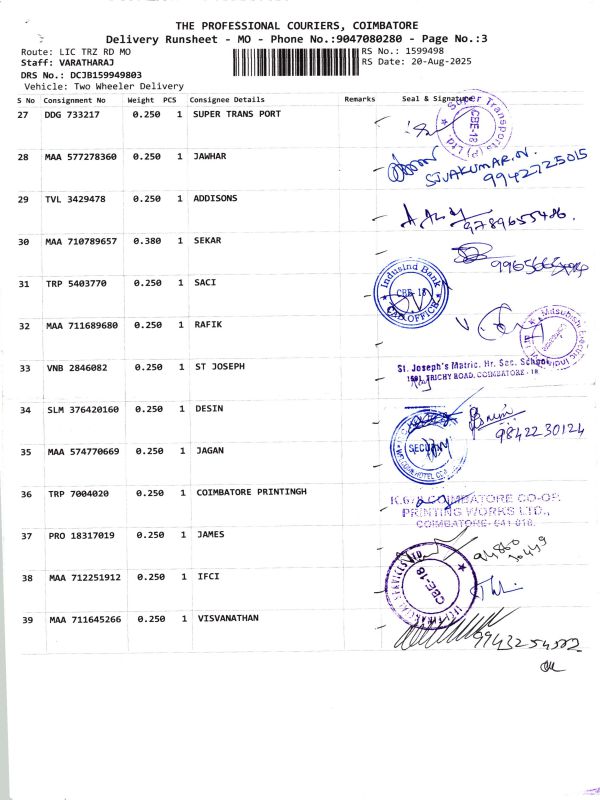 THE PROFESSIONAL COURIERS, COIMBATORE
Delivery Runsheet - MO - Phone No.:9047080280 - Page No.:3
Route: LIC TRZ RD MO
RS No.: 1599498
Staff: VARATHARAJ
RS Date: 20-Aug-2025
DRS No.: DCJB159949803
Vehicle: Two Wheeler Delivery
S No Consignment No Weight PCS Consignee Details Remarks Seal & Signature
27 DDG 733217 0.250 1 SUPER TRANS PORT
Super Transports (P) Ltd. CBE-18
28 MAA 577278360 0.250 1 JAWHAR
SIVAKUMAR.N.
9942725015
29 TVL 3429478 0.250 1 ADDISONS
9789655486.
30 MAA 710789657 0.380 1 SEKAR
31 TRP 5403770 0.250 1 SACI
Indusind Bank
CBE-18
32 MAA 711689680 0.250 1 RAFIK
Mitsubishi Electric
33 VNB 2846082 0.250 1 ST JOSEPH
St. Joseph's Matric. Hr. Sec. School
TRICHY ROAD, COIMBATORE - 18
34 SLM 376420160 0.250 1 DESIN
9842230124
35 MAA 574770669 0.250 1 JAGAN
SECURITY
36 TRP 7004020 0.250 1 COIMBATORE PRINTINGH
COIMBATORE CO-OP.
PRINTING WORKS LTD.,
COIMBATORE-641 018.
37 PRO 18317019 0.250 1 JAMES
38 MAA 712251912 0.250 1 IFCI
CBE-18
39 MAA 711645266 0.250 1 VISVANATHAN